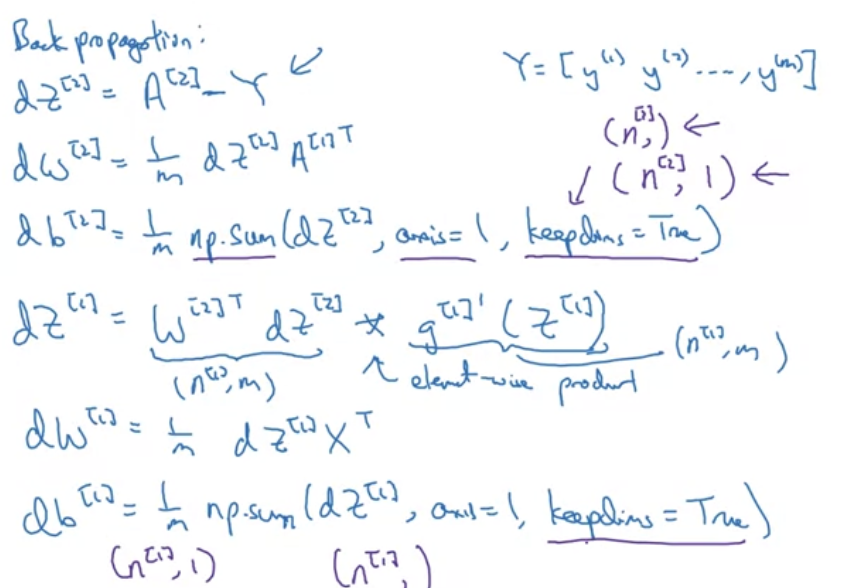 Back propagation:
dZ^[2] = A^[2] - Y ↙
Y = [y^(1) y^(2) ...., y^(m)]
dW^[2] = 1/m dZ^[2] A^[1]T
(n^[2],) ←
↓ (n^[2], 1) ←
db^[2] = 1/m np.sum(dZ^[2], axis=1, keepdims=True)
dZ^[1] = W^[2]T dZ^[2] * g^[1]'(Z^[1])
(n^[1], m) ↖ element-wise product (n^[1], m)
dW^[1] = 1/m dZ^[1] X^T
db^[1] = 1/m np.sum(dZ^[1], axis=1, keepdims=True)
(n^[1], 1) (n^[1],)